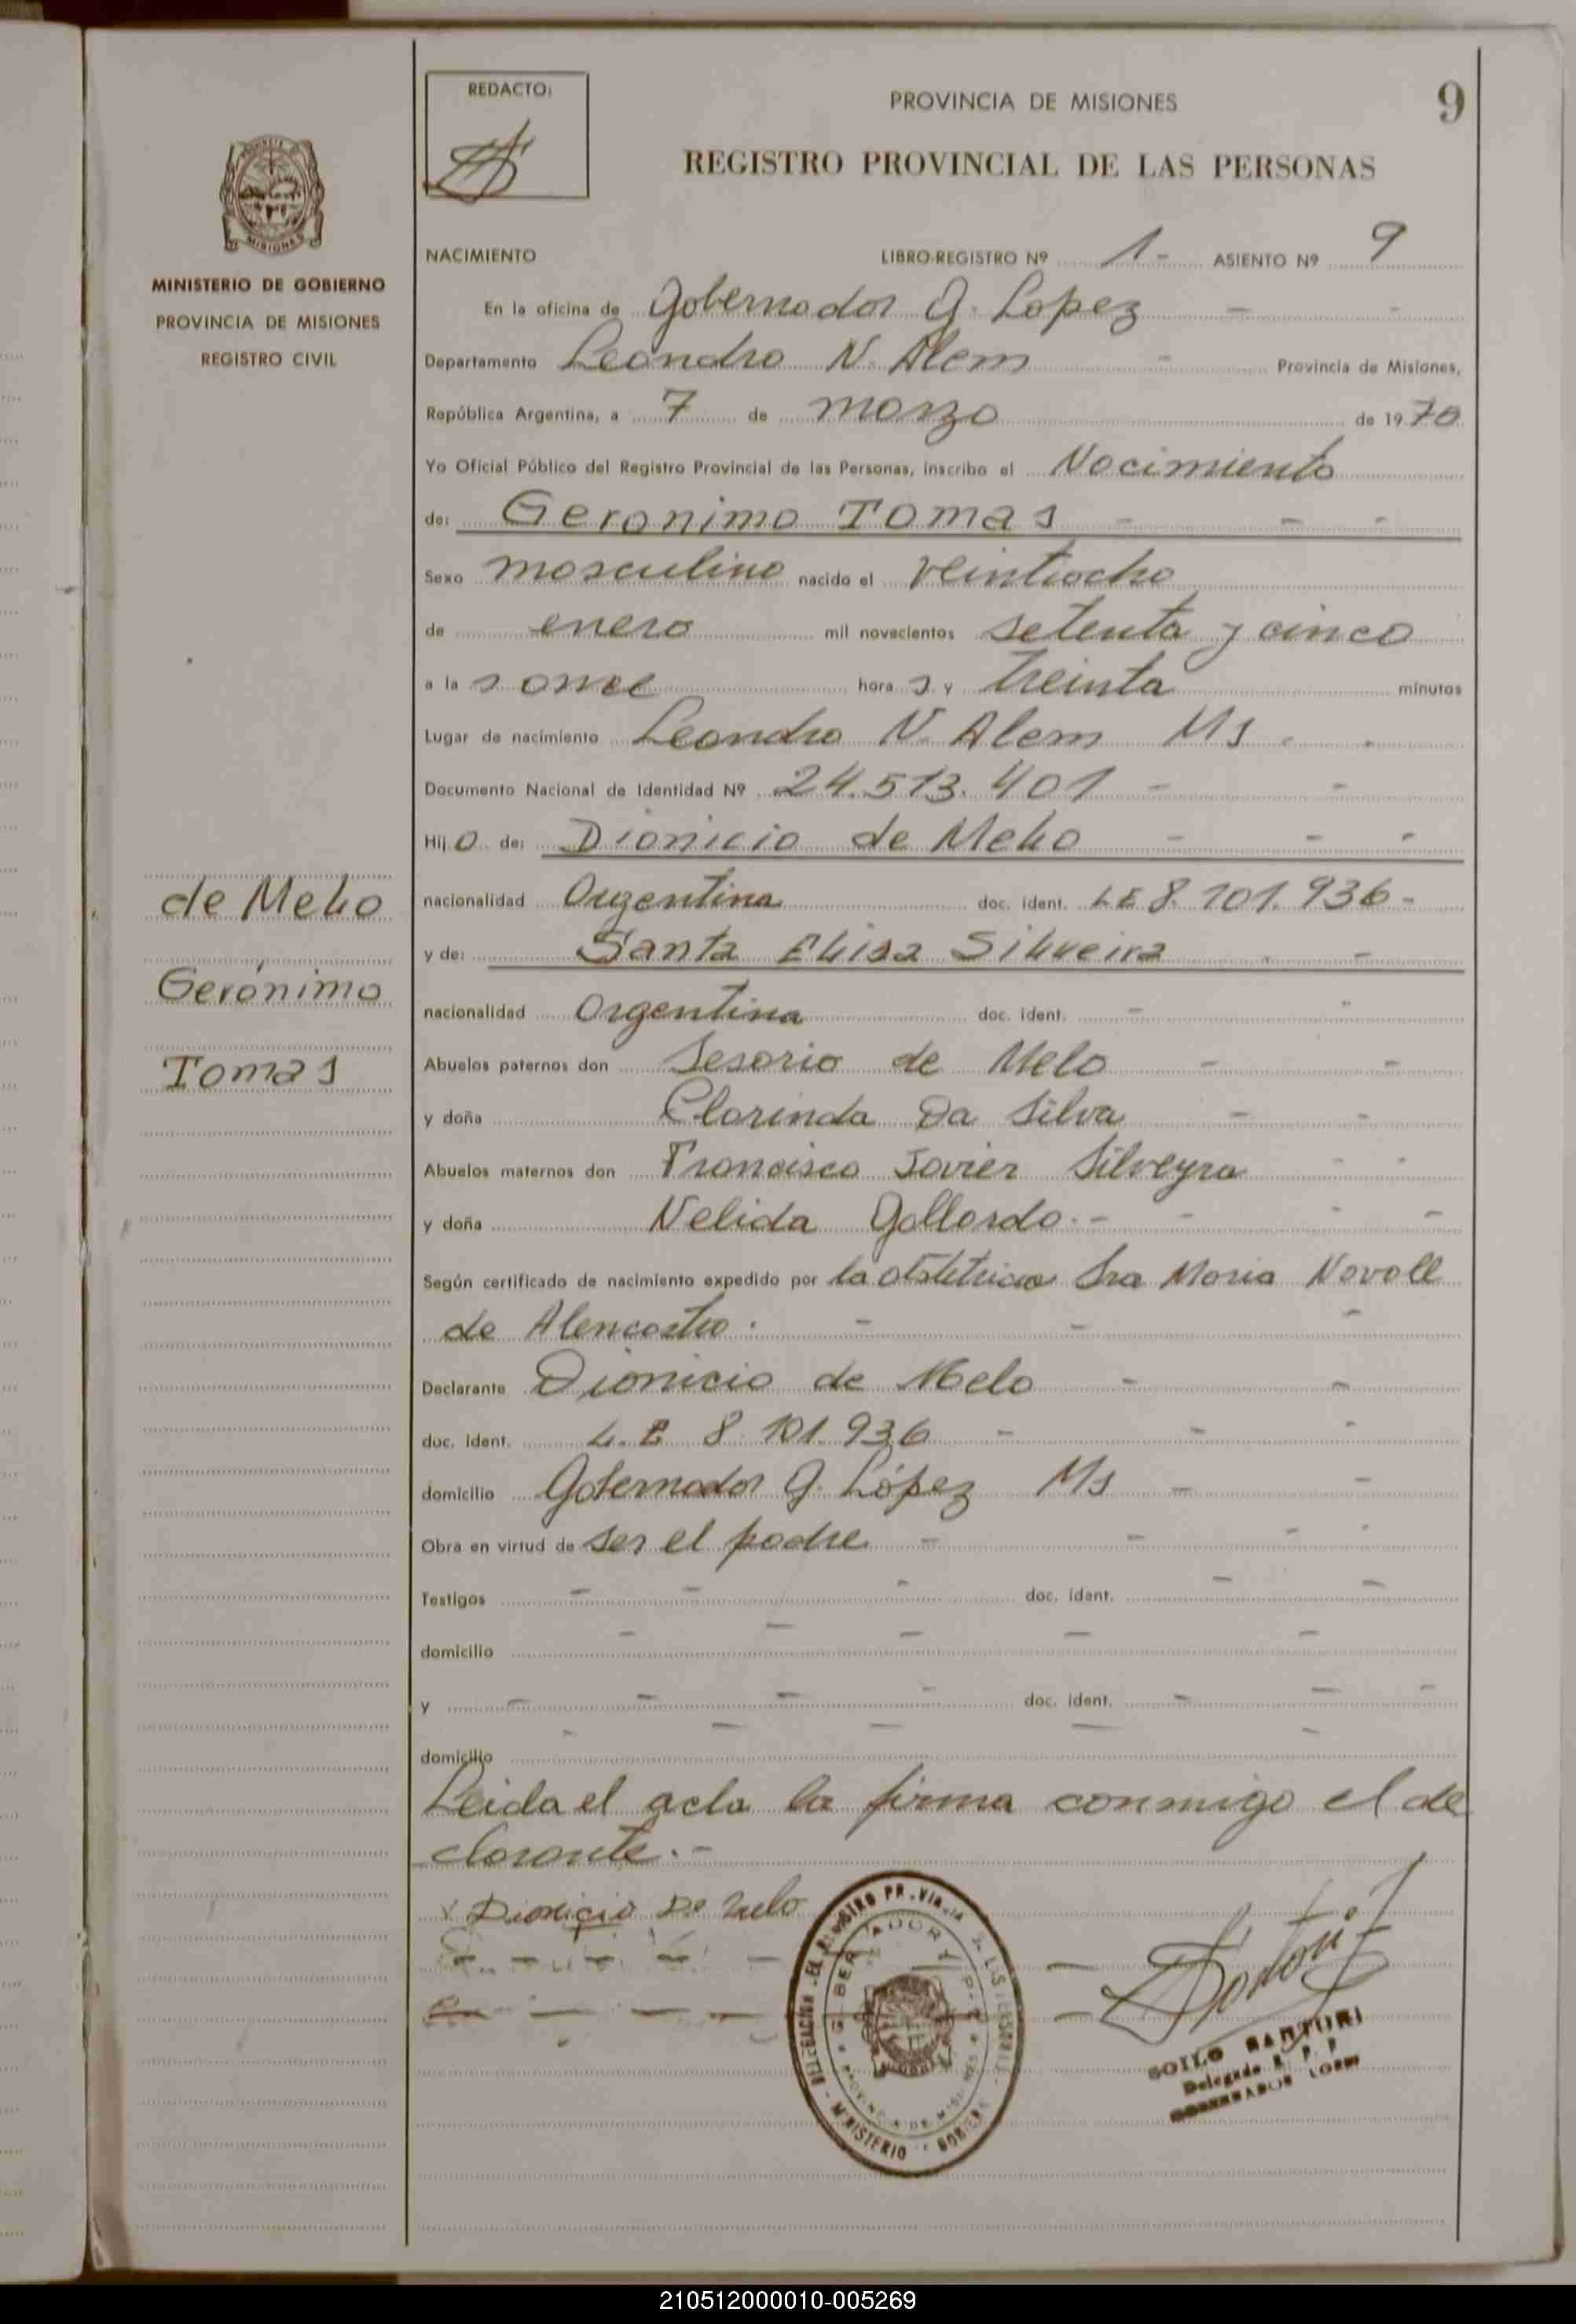 REDACTO:
PROVINCIA DE MISIONES
9
REGISTRO PROVINCIAL DE LAS PERSONAS
MINISTERIO DE GOBIERNO
PROVINCIA DE MISIONES
REGISTRO CIVIL
NACIMIENTO LIBRO-REGISTRO Nº 1 - ASIENTO Nº 9
En la oficina de Gobernador J. Lopez - -
Departamento Leandro N. Alem - Provincia de Misiones,
República Argentina, a 7 de marzo de 19
Yo Oficial Público del Registro Provincial de las Personas, inscribo el Nacimiento
de: Geronimo Tomas - - -
Sexo masculino nacido el veintiocho
de enero mil novecientos setenta y cinco
a la s once hora s y treinta minutos
Lugar de nacimiento Leandro N. Alem Ms
Documento Nacional de Identidad Nº 24.513.401 - -
Hij o de: Dionicio de Melo - - -
nacionalidad Argentina doc. ident. LE 8.101.936 -
y de: Santa Elisa Silveira -
nacionalidad Argentina doc. ident. - -
Abuelos paternos don Sesario de Melo - -
y doña Clorinda Da Silva - -
Abuelos maternos don Francisco Javier Silveyra - -
y doña Nelida Gallardo. - - - -
Según certificado de nacimiento expedido por la obstetrica Sra Maria
de Alencastro. - - -
Declarante Dionicio de Melo - -
doc. ident. L.E 8.101.936 - - -
domicilio Gobernador J. López Ms - -
Obra en virtud de ser el padre - - - -
Testigos - - - doc. ident. - -
domicilio - - - - -
y - - - - doc. ident. - - -
domicilio - - - - -
Leida el acta la firma conmigo el de
clarante. -
de Melo
Gerónimo
Tomas
x Dionicio De Melo
SOILO SARTORI
Delegado R. P. P.
GOBERNADOR LOPEZ
210512000010-005269